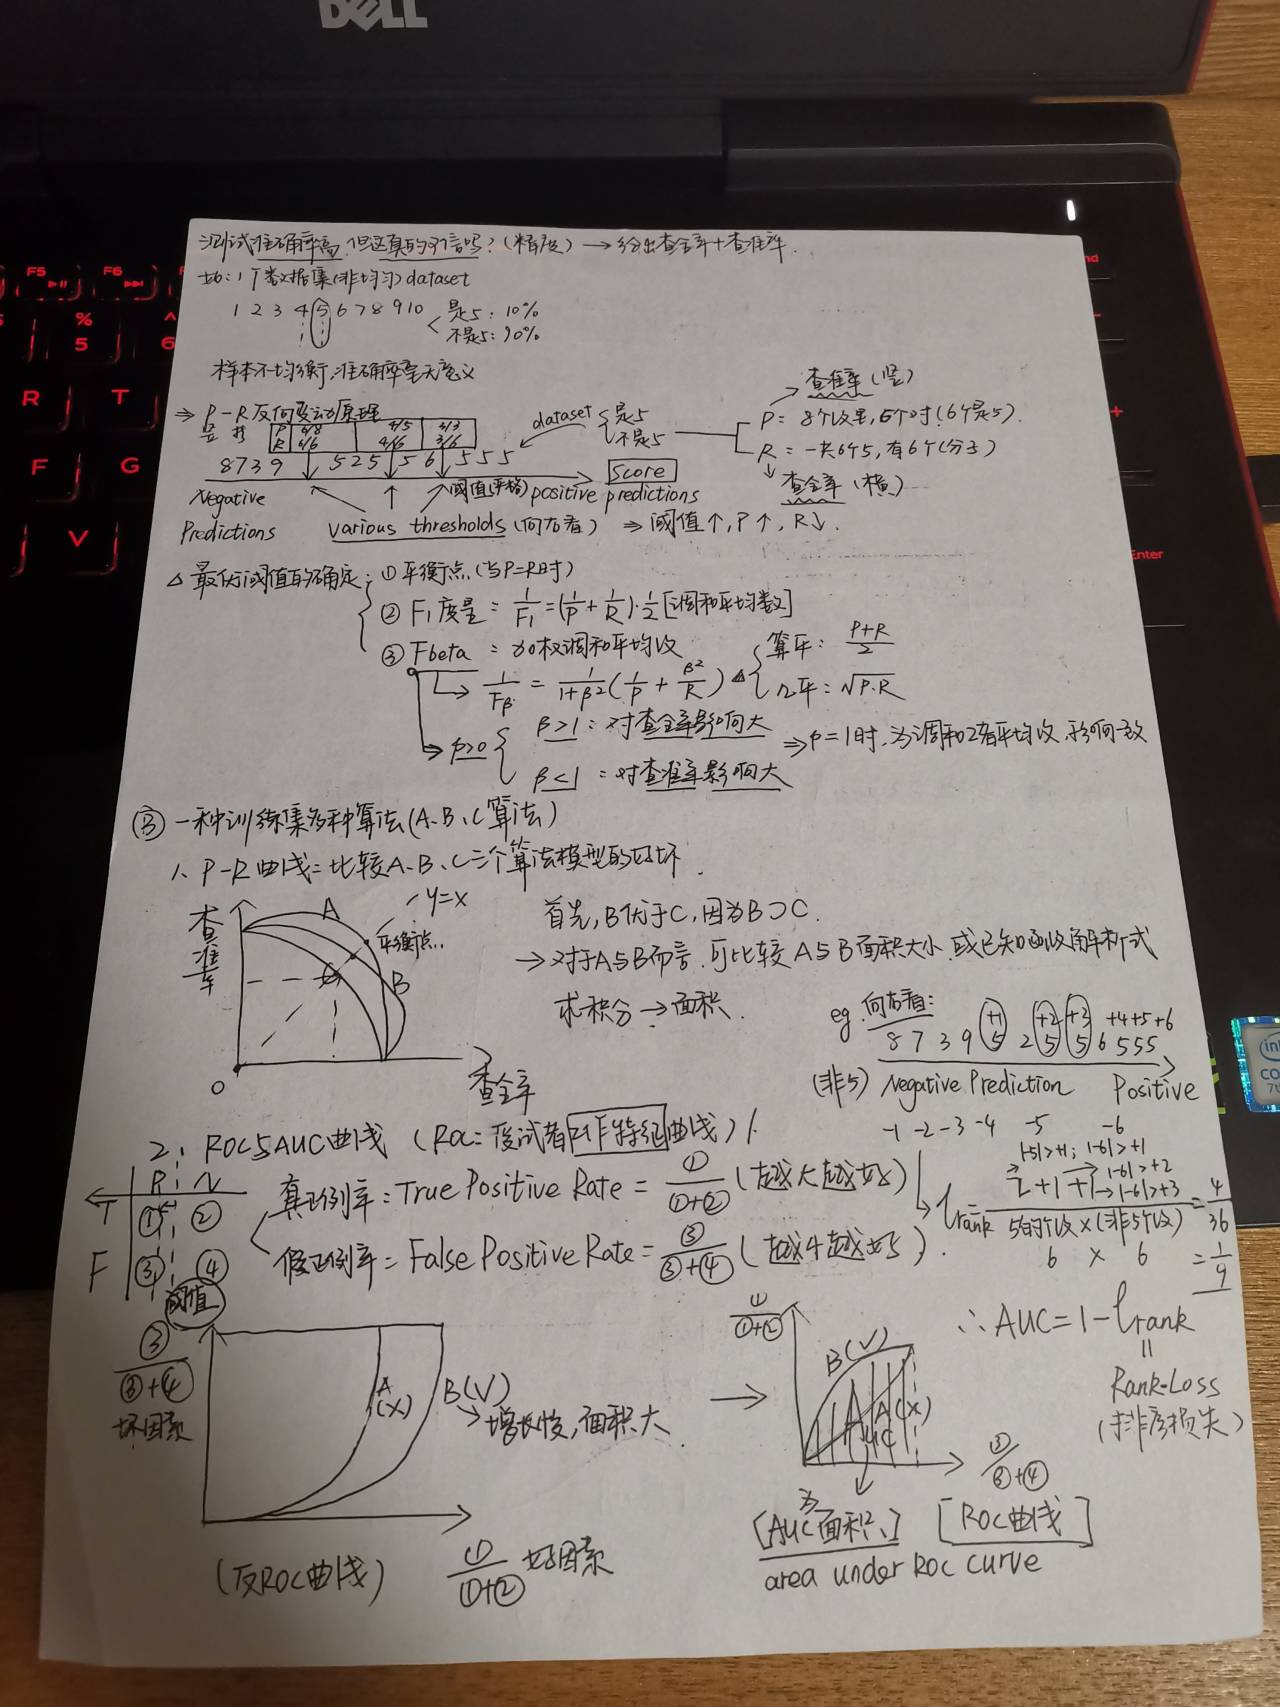 DELL
测试准确率高,但这真的可信吗?(精度) → 给出查全率+查准率.
如: 1个数据集(非均匀) dataset
1 2 3 4 5 6 7 8 9 10
是5: 10%
不是5: 90%
样本不均衡,准确率毫无意义
⇒ P-R反向变动原理
P 6/8 4/5 3/3
R 6/6 4/6 3/6
dataset 是5
不是5
查准率 (竖)
P = 8个数里,6个对(6个是5)
R = 一共6个5,有6个(分子)
查全率 (横)
8 7 3 9 5 2 5 5 6 5 5 5
Score
Negative Predictions
阈值(严格) positive predictions
various thresholds (向右看) ⇒ 阈值↑, P↑, R↓.
△ 最优阈值的确定: ① 平衡点 (当P=R时)
② F1度量 = 1/F1 = (1/P + 1/R)·1/2 [调和平均数]
③ Fbeta = 加权调和平均数
算平: P+R/2
几平 = √P·R
→ 1/Fβ = 1/1+β² (1/P + β²/R)
→ β>0
β>1: 对查全率影响大
β<1: 对查准率影响大
⇒ β=1时,为调和平均数,影响一致
③ 一种训练集多种算法(A、B、C算法)
1、P-R曲线: 比较A、B、C三个算法模型的好坏.
查准率
A
y=x
平衡点
C
B
O
查全率
首先,B优于C,因为B⊃C.
→ 对于A与B而言,可比较A与B面积大小,或已知函数解析式
求积分 → 面积.
eg. 向右看:
+1 +2 +3 +4+5+6
8 7 3 9 5 2 5 5 6 5 5 5
(非5) Negative Prediction Positive
-1 -2 -3 -4 -5 -6
2: ROC与AUC曲线 (ROC: 受试者工作特征曲线)
P N
T ① ②
F ③ ④
真正例率: True Positive Rate = ①/①+② (越大越好)
假正例率: False Positive Rate = ③/③+④ (越小越好).
|-5|>+1; |-6|>+1
|-6|>+2
|-6|>+3
ℓrank = 2+1+1/5的个数×(非5个数) = 4/36
6 × 6 = 1/9
∴ AUC = 1 - ℓrank
Rank-Loss
(排序损失)
阈值
③/③+④
坏因素
A (×)
B(√)
→ 增长慢,面积大
(反ROC曲线)
①/①+② 好因素
①/①+②
B(√)
A(×)
AUC
③/③+④
为
[AUC面积] [ROC曲线]
area under ROC curve
F5
F6
%
5
6
R
T
F
G
V
Enter